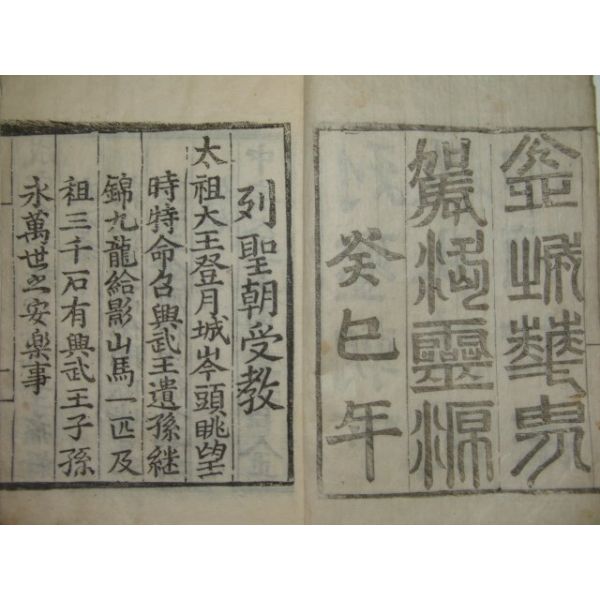 盆城華冑
駕洛靈源
癸巳年
列聖朝受教
太祖大王登月城岑頭眺望
時特命召興武王遺孫継
錦九龍給影山馬一匹及
祖三千石有興武王子孫
永萬世之安樂事